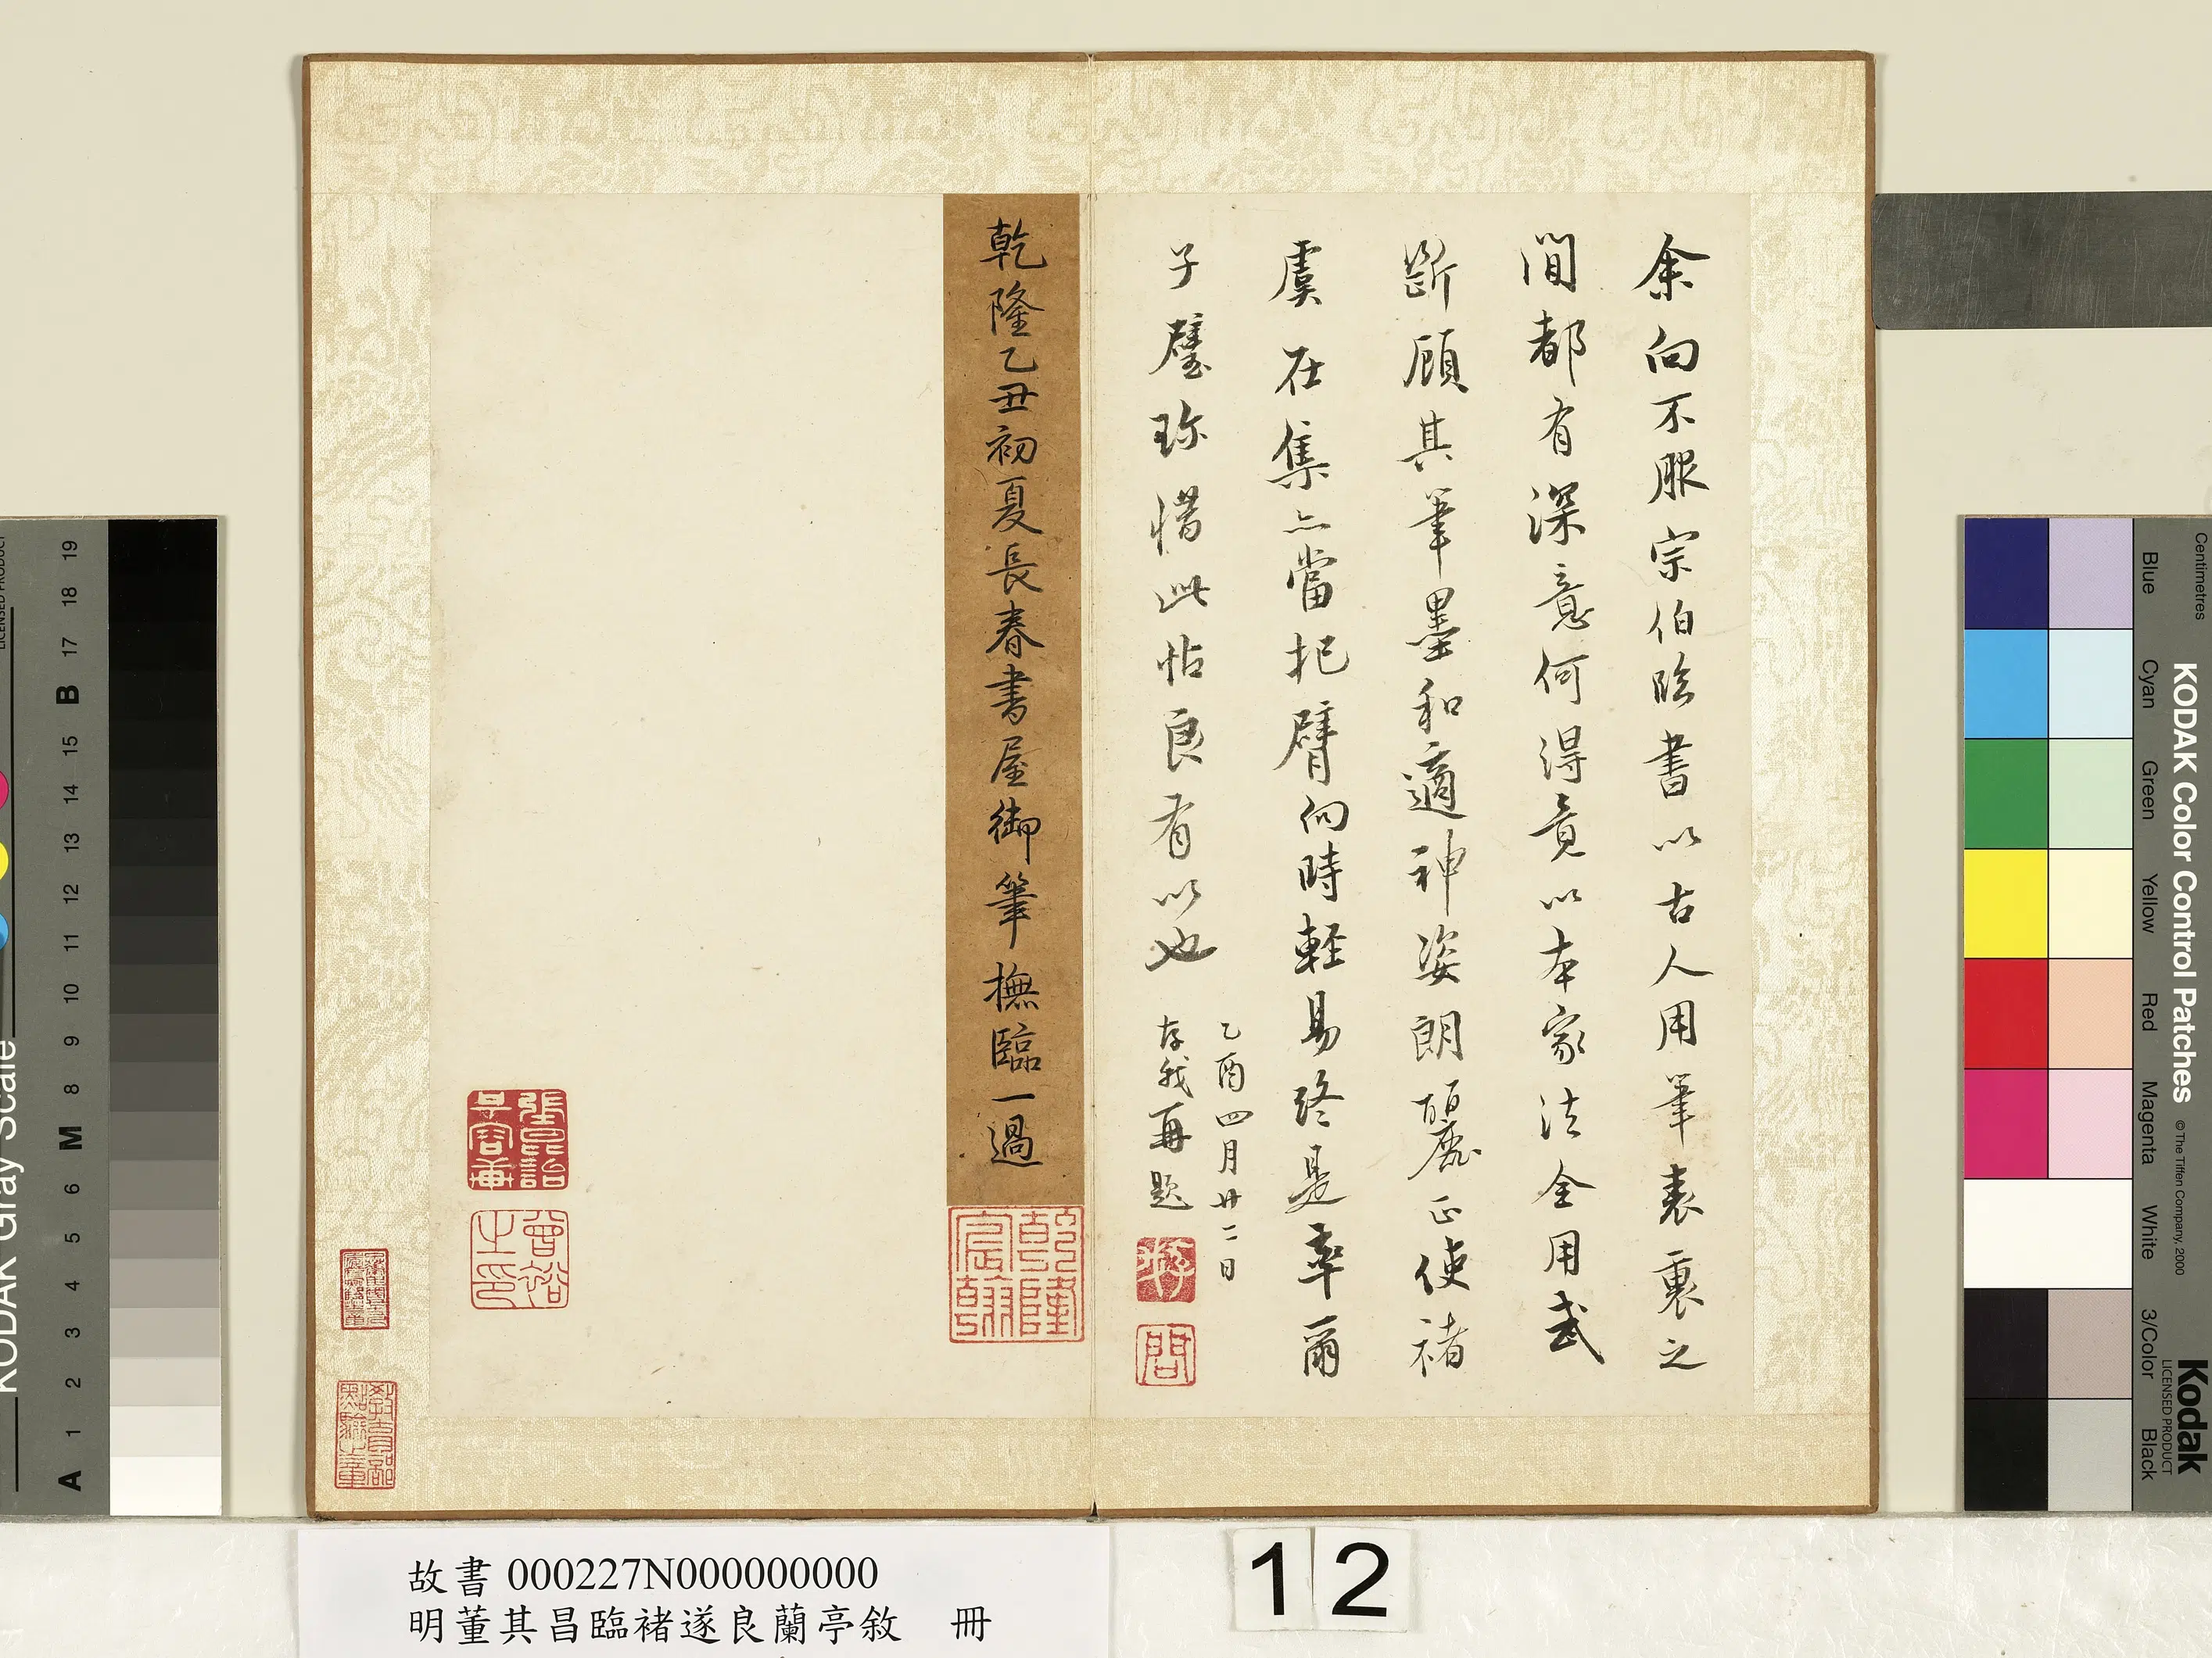 余向不服宗伯臨書以古人用筆表裏之
間都有深意何得竟以本家法全用武
斷顧其筆墨和適神姿朗麗正使褚
虞在集亦當把臂向時輕易終是率爾
子璧珍惜此帖良有以也
乙酉四月廿二日
存我再題
乾隆乙丑初夏長春書屋御筆撫臨一過
乾隆宸翰
曾裕之印
教育部點驗之章
故書 000227N000000000
明董其昌臨褚遂良蘭亭敘 冊
12
KODAK Gray Scale
LICENSED PRODUCT
A 1 2 3 4 5 6 M 8 9 10 11 12 13 14 15 B 17 18 19
KODAK Color Control Patches
© The Tiffen Company, 2000
Kodak
LICENSED PRODUCT
Centimetres
Blue Cyan Green Yellow Red Magenta White 3/Color Black